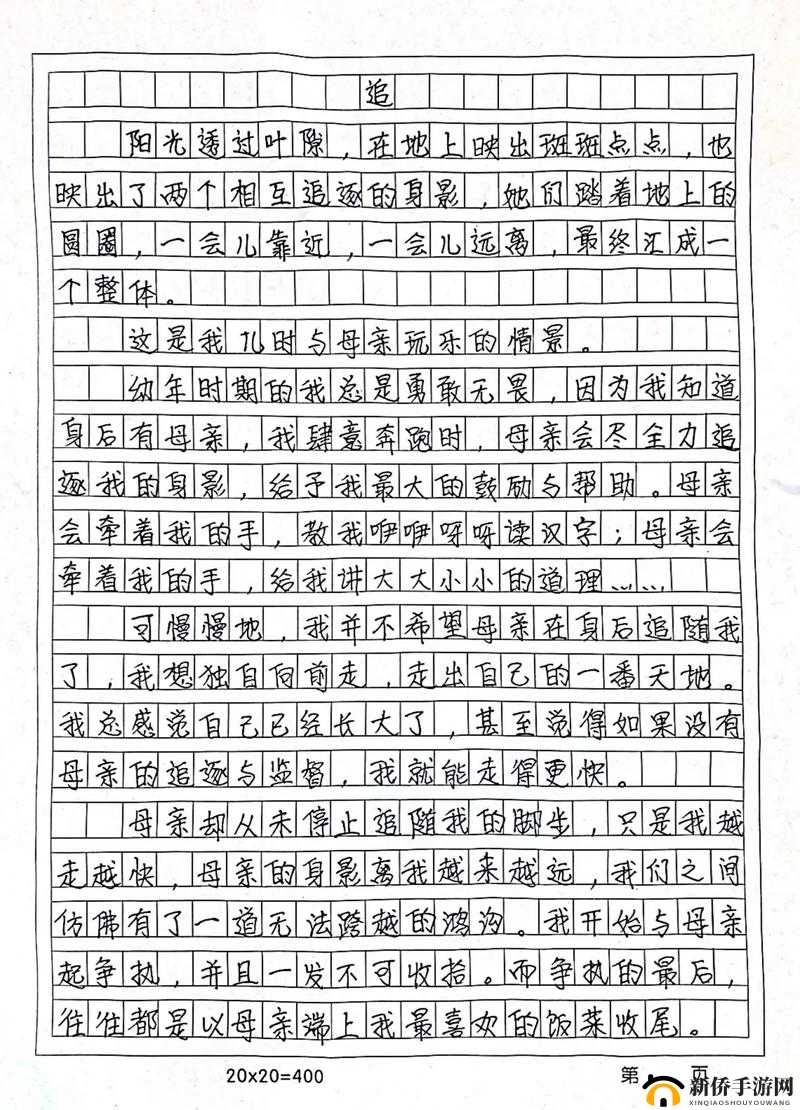 追
阳光透过叶隙，在地上映出斑斑点点，也
映出了两个相互追逐的身影，她们踏着地上的
圆圈，一会儿靠近，一会儿远离，最终汇成一
个整体。
这是我儿时与母亲玩乐的情景。
幼年时期的我总是勇敢无畏，因为我知道
身后有母亲，我肆意奔跑时，母亲会尽全力追
逐我的身影，给予我最大的鼓励与帮助。母亲
会牵着我的手，教我咿咿呀呀读汉字；母亲会
牵着我的手，给我讲大大小小的道理……
可慢慢地，我并不希望母亲在身后追随我
了，我想独自向前走，走出自己的一番天地。
我总感觉自己已经长大了，甚至觉得如果没有
母亲的追逐与监督，我就能走得更快。
母亲却从未停止追随我的脚步，只是我越
走越快，母亲的身影离我越来越远，我们之间
仿佛有了一道无法跨越的鸿沟。我开始与母亲
起争执，并且一发不可收拾。而争执的最后，
往往都是以母亲端上我最喜欢的饭菜收尾。
20x20=400
第 页
新侨手游网
XINQIAOSHOUYOUWANG